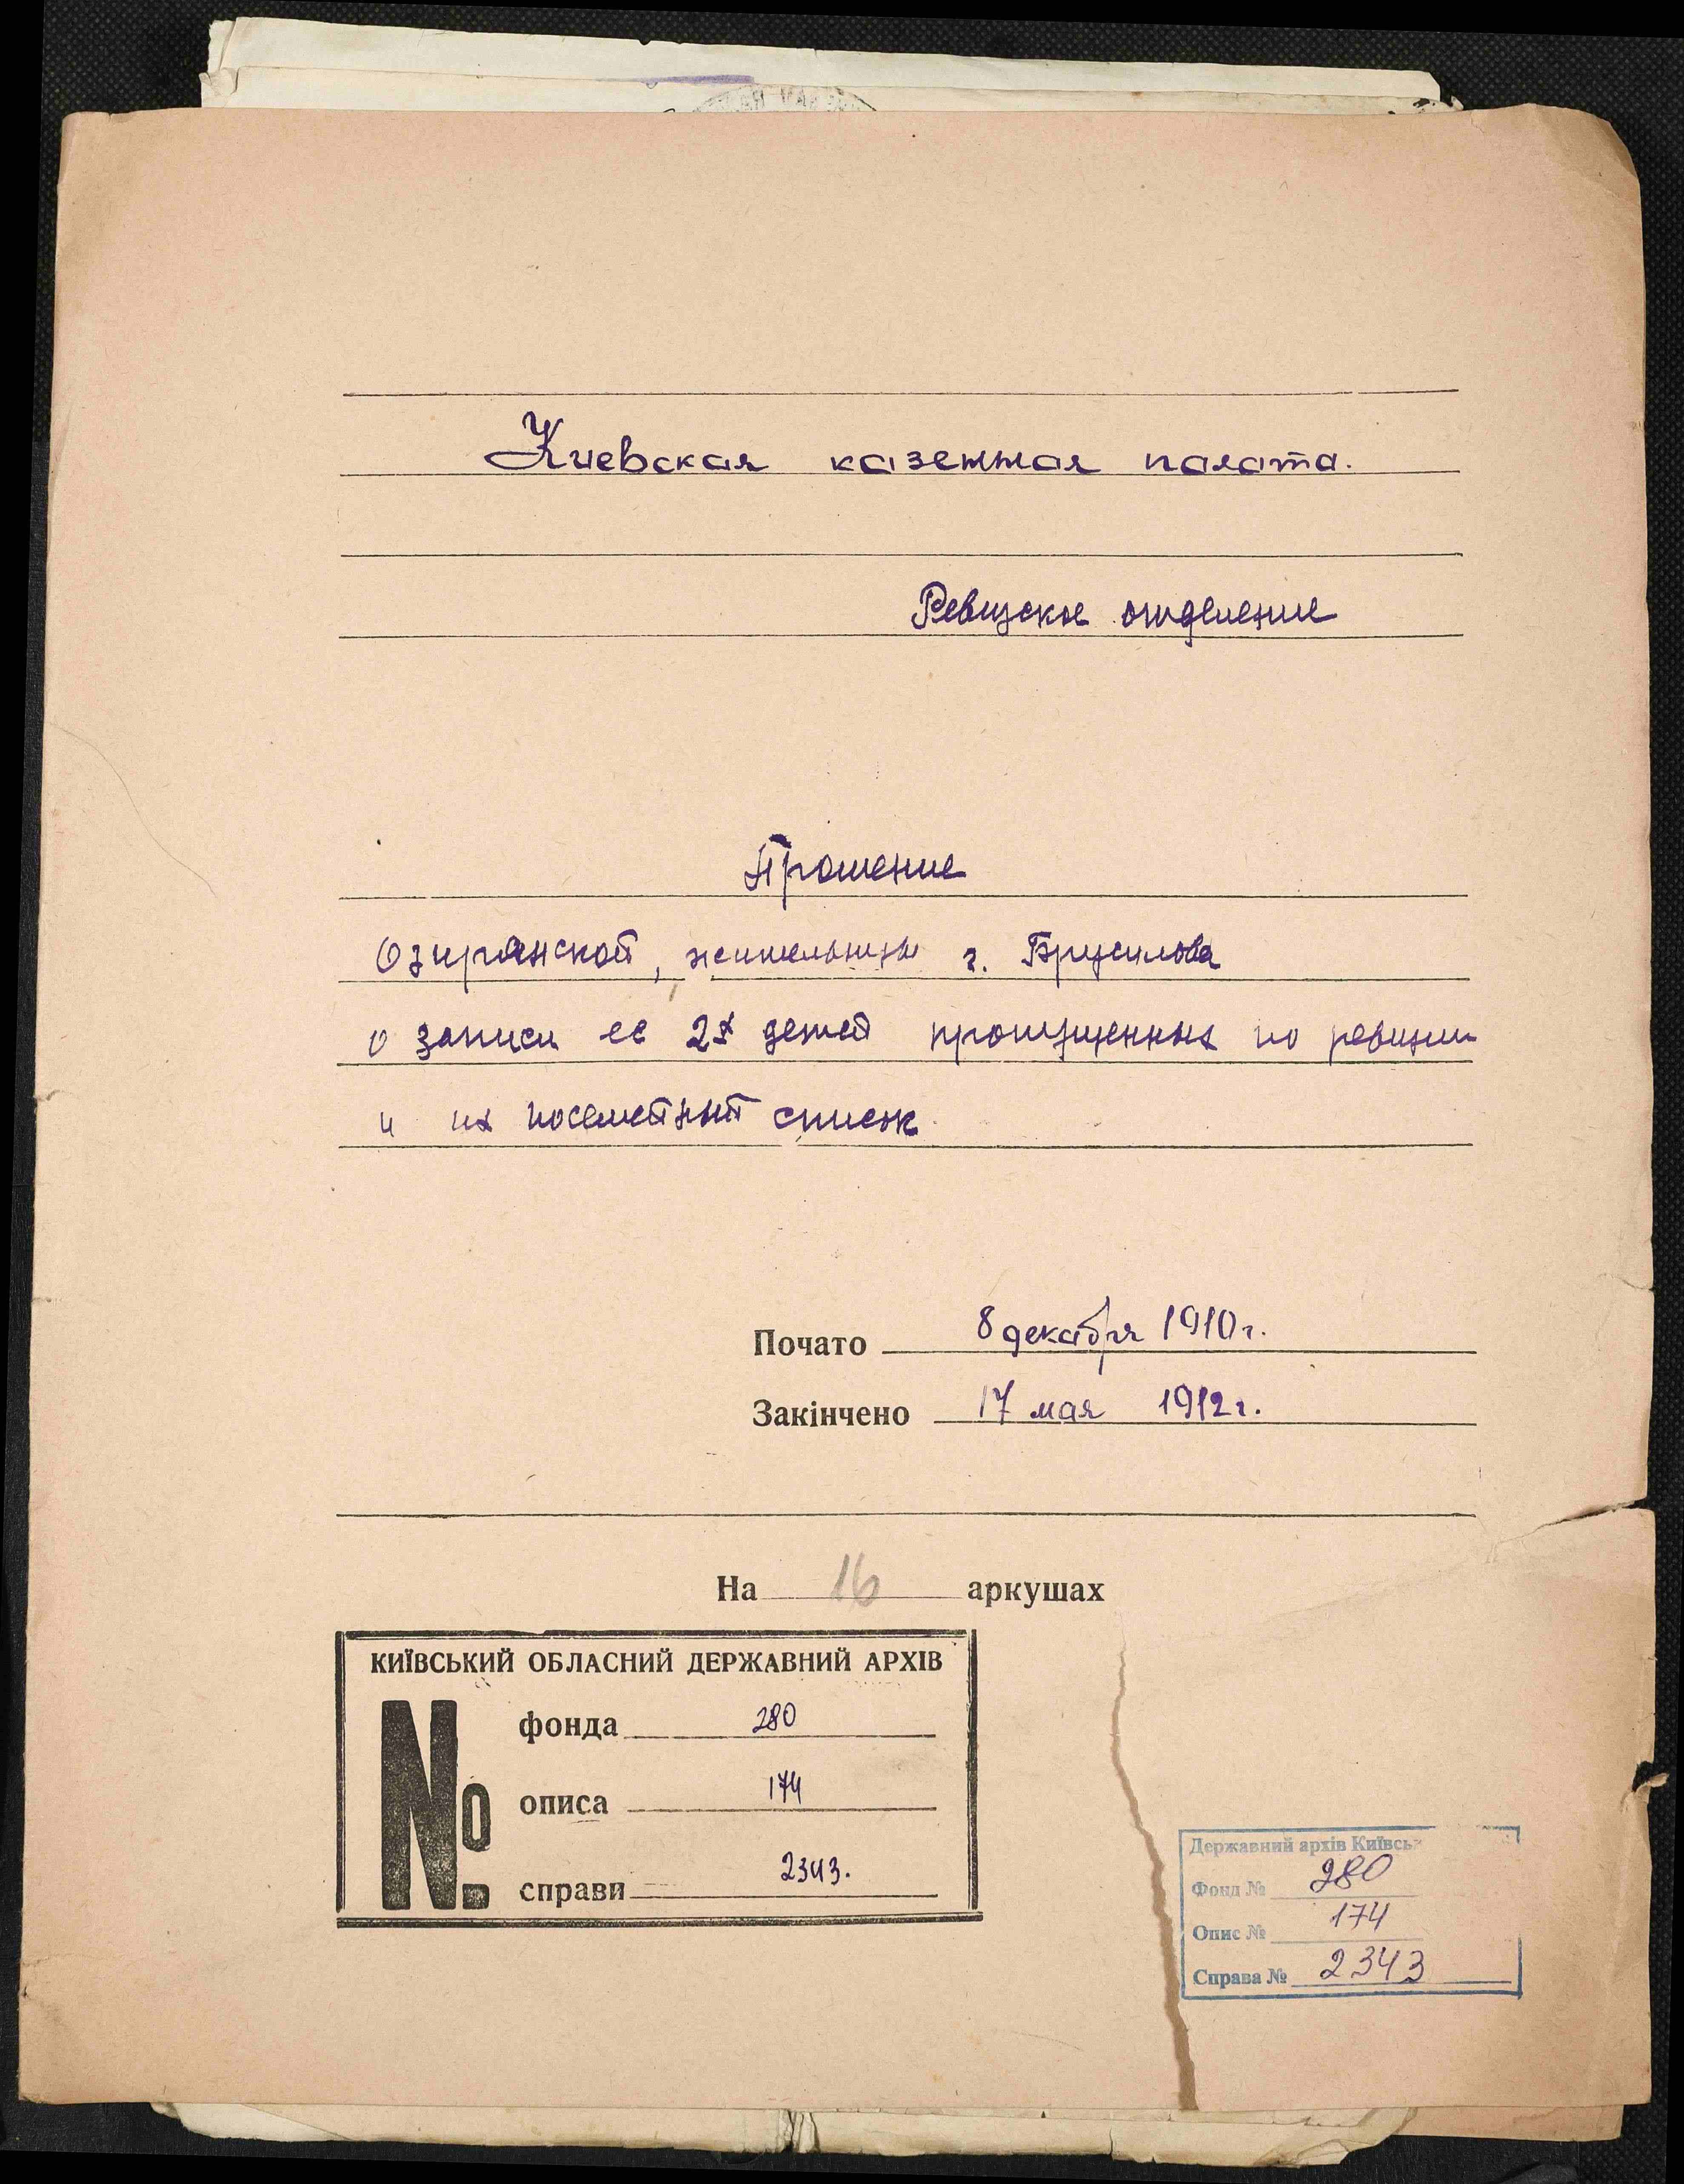 Киевская казенная палата.
Ревизское отделение
Прошение
Озирянской, жительницы г. Брусилова
о записи ее 2х детей пропущенных по ревизии
и их посемейный список
Почато 8 декабря 1910 г.
Закінчено 17 мая 1912 г.
На 16 аркушах
КИЇВСЬКИЙ ОБЛАСНИЙ ДЕРЖАВНИЙ АРХІВ
№
фонда 280
описа 174
справи 2343.
Державний архів Київсь
Фонд № 280
Опис № 174
Справа № 2343